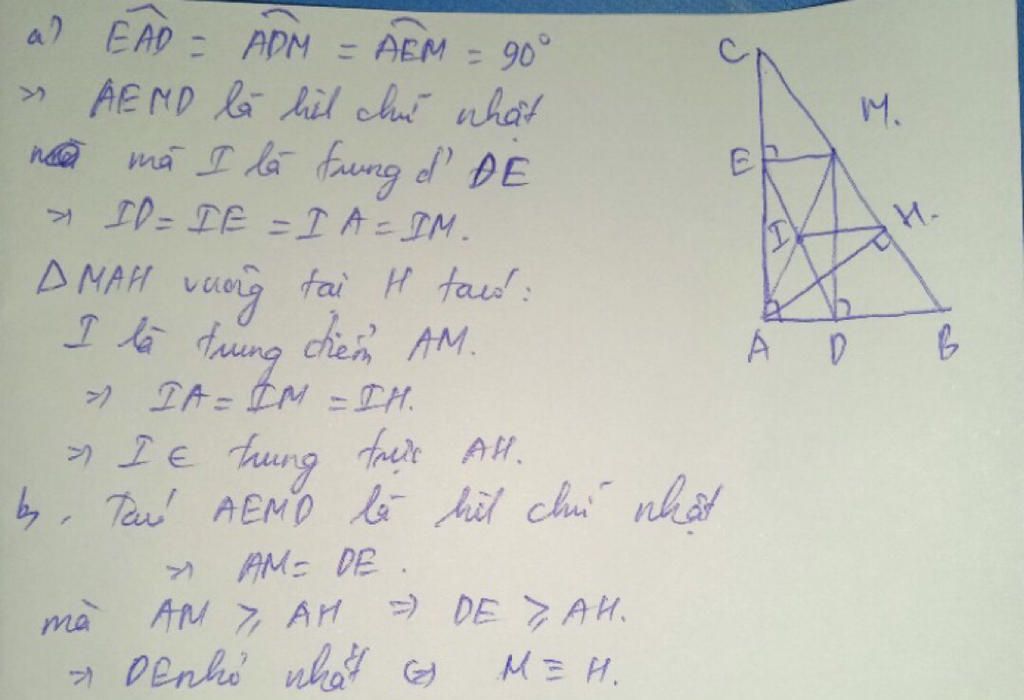 a) EAD = ADM = AEM = 90°
=> AEMD là hìl chữ nhật
mà I là trung đ' DE
=> ID = IE = IA = IM.
Δ MAH vuông tại H ta có:
I là trung điểm AM.
=> IA = IM = IH.
=> I ∈ trung trực AH.
b, Ta có AEMD là hìl chữ nhật
=> AM = DE.
mà AM ≥ AH => DE ≥ AH.
=> DE nhỏ nhất (=) M ≡ H.
C
M.
E
H.
I
A D B